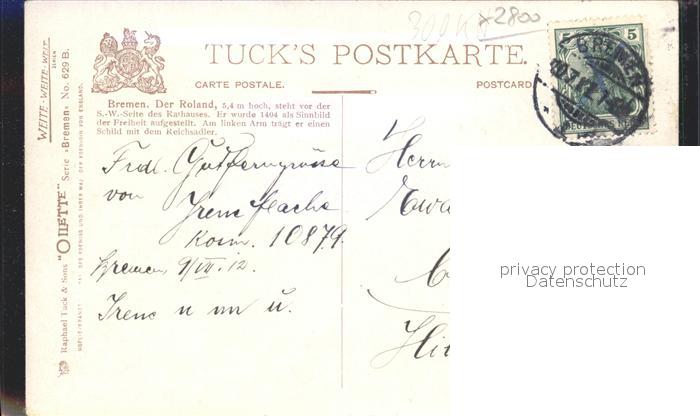 300 x 2800
TUCK'S POSTKARTE.
CARTE POSTALE. POSTCARD
Bremen. Der Roland, 5,4 m hoch, steht vor der
S.-W.-Seite des Rathauses. Er wurde 1404 als Sinnbild
der Freiheit aufgestellt. Am linken Arm trägt er einen
Schild mit dem Reichsadler.
WEITE-WEITE-WELT
SERIEN
Raphael Tuck & Sons "OILETTE" Serie »Bremen« No. 629 B.
5 5
BREMEN
Frdl.
von Irene
Korn. 10879.
Bremen 9/VII. 12.
Irene u u.
Herrn
Ewa
Hi
privacy protection
Datenschutz